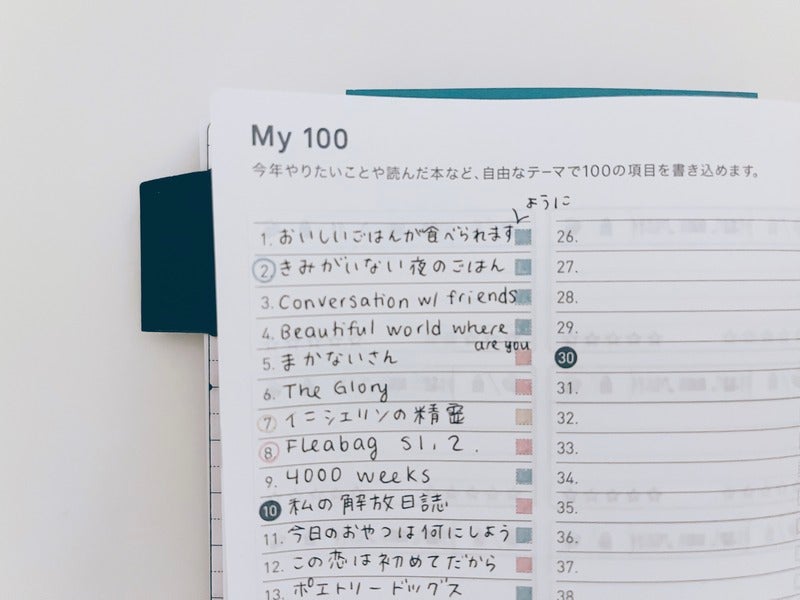 My 100
今年やりたいことや読んだ本など、自由なテーマで100の項目を書き込めます。
ように
1. おいしいごはんが食べられます
2. きみがいない夜のごはん
3. Conversation w/ friends
4. Beautiful world where
are you
5. まかないさん
6. The Glory
7. イニシェリンの精霊
8. Fleabag S1, 2.
9. 4000 weeks
10 私の解放日誌
11. 今日のおやつは何にしよう
12. この恋は初めてだから
13. ポエトリードッグス
26.
27.
28.
29.
30
31.
32.
33.
34.
35.
36.
37.
38